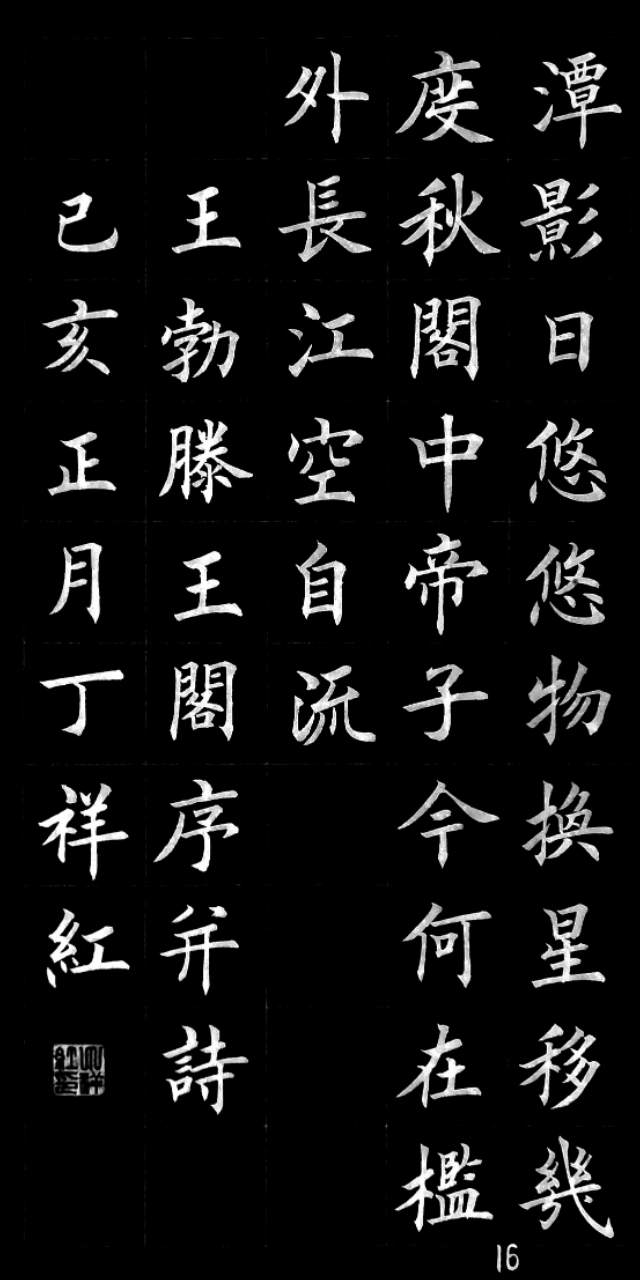 潭影日悠悠物換星移幾
度秋閣中帝子今何在檻
外長江空自流
王勃滕王閣序并詩
己亥正月丁祥紅
16